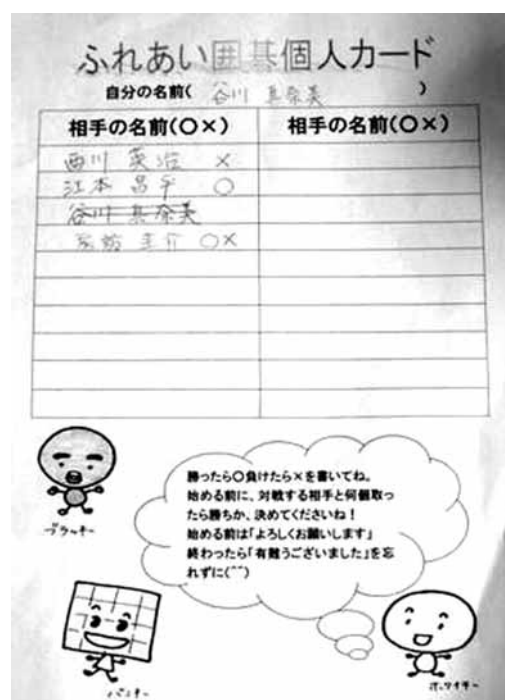 ふれあい囲碁個人カード
自分の名前( 谷川 真奈美 )
相手の名前(○×) 相手の名前(○×)
西川 英治 ×
江本 昌平 ○
谷川 真奈美
圭介 ○×
勝ったら○負けたら×を書いてね。
始める前に、対戦する相手と何個取っ
たら勝ちか、決めてくださいね！
始める前は「よろしくお願いします」
終わったら「有難うございました」を忘
れずに(^^)
ブラッキー
バンキー
ホワイキー